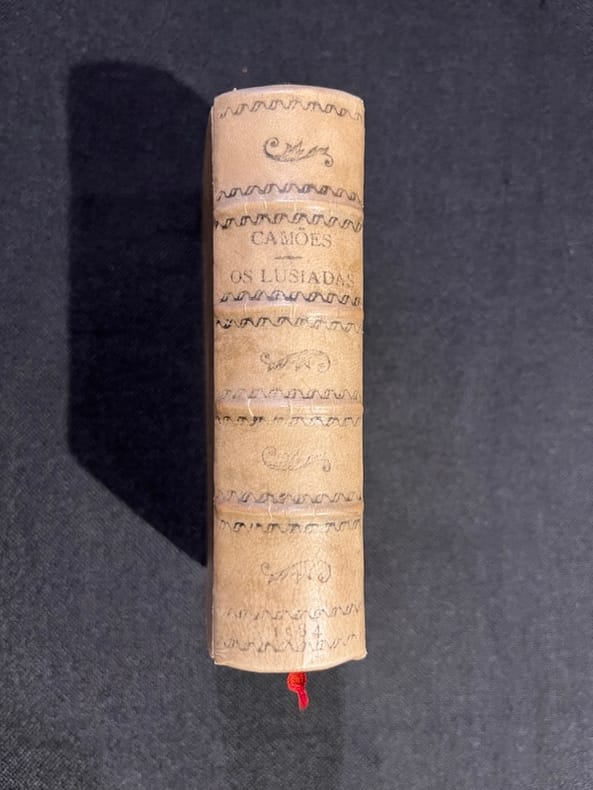 CAMÕES
OS LUSIADAS
1934